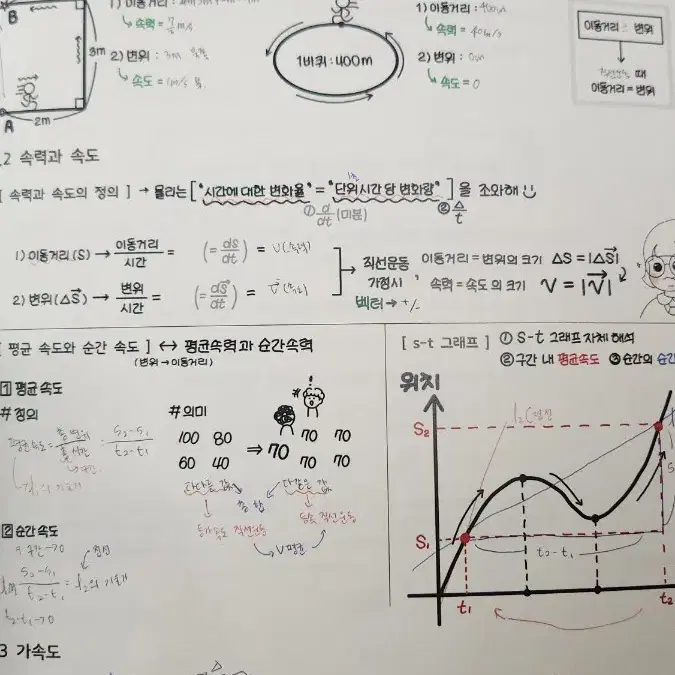 B
A
2m
3m
1) 이동거리 :
↳ 속력 =
2) 변위 : 3m
↳ 속도 =
1바퀴 : 400m
1) 이동거리 : 400m
↳ 속력 = 40m/s
2) 변위 : 0m
↳ 속도 = 0
이동거리 ≥ 변위
때
이동거리 = 변위
.2 속력과 속도
[ 속력과 속도의 정의 ] → 물리는 ["시간에 대한 변화율" = "단위시간 당 변화량"] 을 조와해
① d/dt (미분)
② Δ/t
1) 이동거리(S) → 이동거리/시간 = (= dS/dt) = v (속력)
2) 변위(ΔS⃗) → 변위/시간 = (= dS⃗/dt) = v⃗ (속도)
직선운동
가정시
벡터 → +/-
이동거리 = 변위의 크기 ΔS = |ΔS⃗|
속력 = 속도의 크기 V = |V⃗|
[ 평균 속도와 순간 속도 ] ↔ 평균속력과 순간속력
(변위→이동거리)
1 평균 속도
# 정의
평균속도 = 총 변위/총 시간 = S₂-S₁/t₂-t₁
# 의미
100 80
60 40
⇒ 70
70 70
70 70
등가속도 직선운동
등속 직선운동
V 평균
2 순간 속도
S₂-S₁/t₂-t₁ = l₂의 기울기
t₂-t₁→0
3 가속도
[ s-t 그래프 ] ① S-t 그래프 자체 해석
② 구간 내 평균속도 ③ 순간의 순간
위치
S₂
S₁
t₂-t₁
t₁
t₂